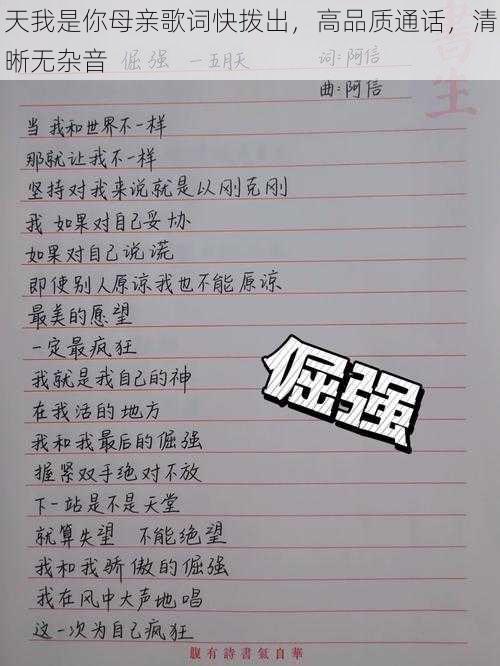 天我是你母亲歌词快拨出，高品质通话，清
晰无杂音
倔强 一五月天 词:阿信
曲:阿信
书生
当我和世界不一样
那就让我不一样
坚持对我来说就是以刚克刚
我 如果对自己妥协
如果对自己说谎
即使别人原谅我也不能原谅
最美的愿望
一定最疯狂
我就是我自己的神
在我活的地方
倔强
我和我最后的倔强
握紧双手绝对不放
下一站是不是天堂
就算失望 不能绝望
我和我骄傲的倔强
我在风中大声地唱
这一次为自己疯狂
腹有詩書氣自華